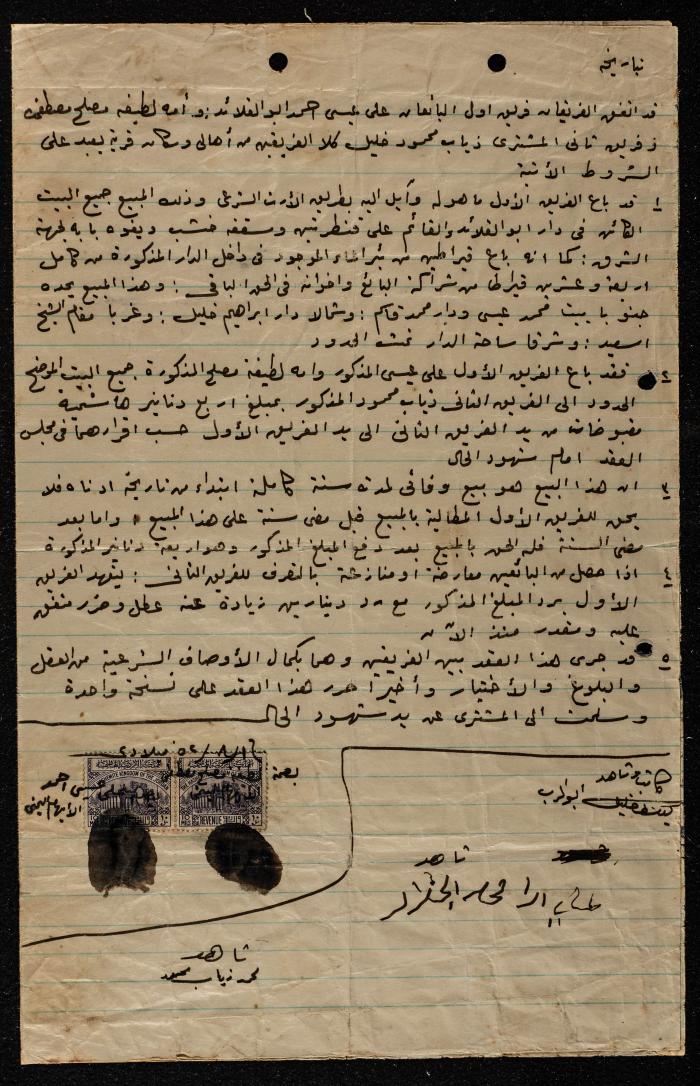 بتاريخه
قد اتفق الفريقان فريق اول البائعان علي عيسى احمد ابو القلائد : وأمه لطيفه مصلح مصطفى
وفريق ثاني المشتري ذياب محمود خليل كلا الفريقين من أهالي وسكان قرية يعبد على
الشروط الآتية
١ قد باع الفريق الأول ما هو له وآيل اليه بطريق الأرث الشرعي وذلك المبيع جميع البيت
الكائن في دار ابو القلائد والقائم على قنطرتين وسقفه خشب ويفوه بابه لجهة
الشرق : كما انه باع قيراطين من بئر الماء الموجود في داخل الدار المذكورة من كامل
اربعة وعشرين قيراطا من شراكة البائع واخوانه في الحق الباقي : وهذا المبيع يحده
جنوبا بيت محمد عيسى ودار محمد قاسم : وشمالا دار ابراهيم خليل : وغربا مقام الشيخ
اسعيد : وشرقا ساحة الدار تمت الحدود
٢ فقد باع الفريق الأول علي عيسى المذكور وامه لطيفة مصلح المذكورة جميع البيت الموضح
الحدود الى الفريق الثاني ذياب محمود المذكور بمبلغ اربع دنانير هاشمية
مقبوضات من يد الفريق الثاني الى يد الفريق الأول حسب اقرارهما في مجلس
العقد امام شهود الحال
٣ ان هذا البيع هو بيع وفائي لمدة سنة كاملة ابتداء من تاريخه ادناه فلا
يحق للفريق الأول المطالبة بالمبيع قبل مضي سنة على هذا المبيع واما بعد
مضي السنة فله الحق بالمبيع بعد دفع المبلغ المذكور وهو اربعة دنانير المذكورة
٤ اذا حصل من البائعين معارضة او منازعة بالتصرف للفريق الثاني : يتعهد الفريق
الأول برد المبلغ المذكور مع رد دينارين زيادة عنه عطل وضرر متفق
عليه ومقدر منذ الآن
٥ قد جرى هذا العقد بين الفريقين وهما بكمال الأوصاف الشرعية من العقل
والبلوغ والأختيار وأخيرا حرر هذا العقد على نسخة واحدة
وسلمت الى المشتري عن يد شهود الحال
ميلادي
بصمة
عيسى احمد
REVENUE
REVENUE
كاتب وشاهد
شاهد
شاهد
محمد ذياب محمود